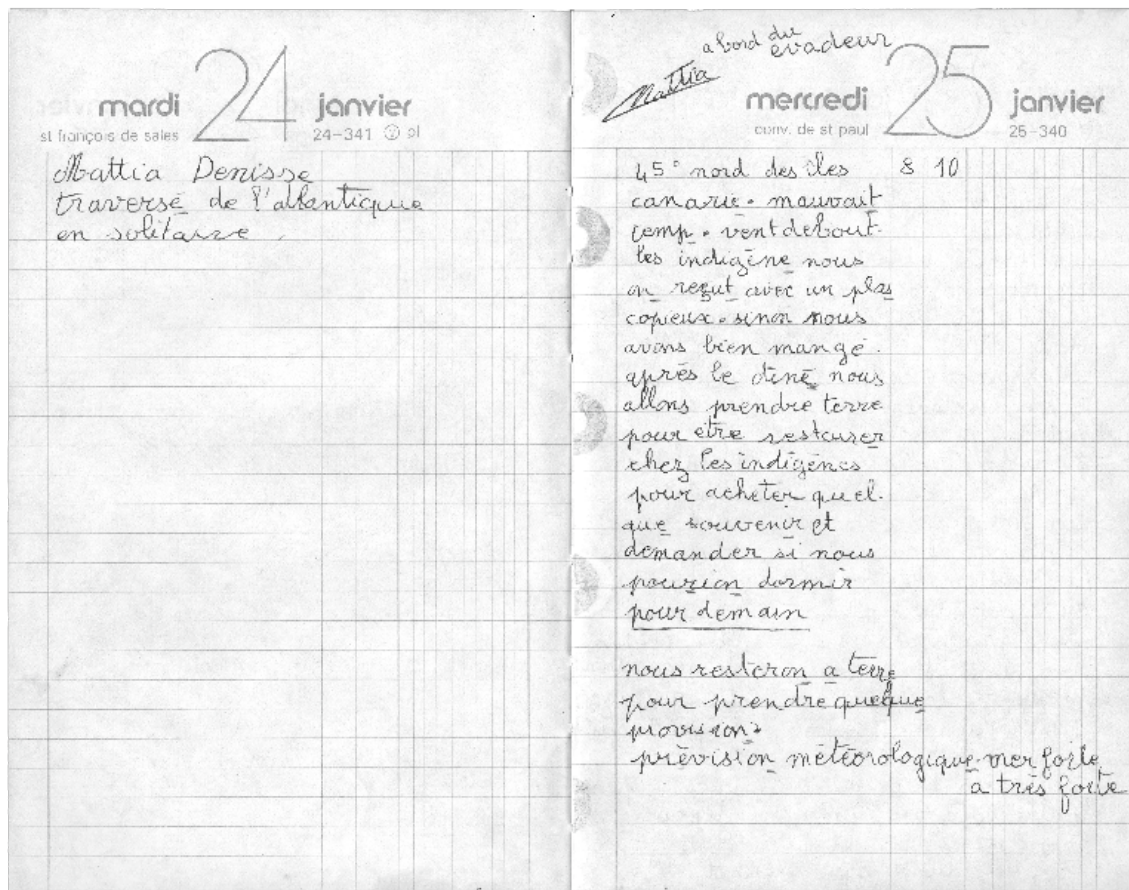 mardi 24 janvier
st françois de sales 24-341
Mattia Denisse
traversé de l'atlantique
en solitaire.
a bord du
evadeur
Mattia
mercredi 25 janvier
conv. de st paul 25-340
45° nord des îles 8 10
canarie. mauvait
temp. vent debout.
les indigène nous
on reçut avec un plas
copieux. sinon nous
avons bien mangé.
après le dîné nous
allons prendre terre
pour etre restaurer
chez les indigènes
pour acheter quel-
que souvenir et
demander si nous
pouvion dormir
pour demain
nous resteron a terre
pour prendre quelque
provision
prévision météorologique. mer forte
a très forte